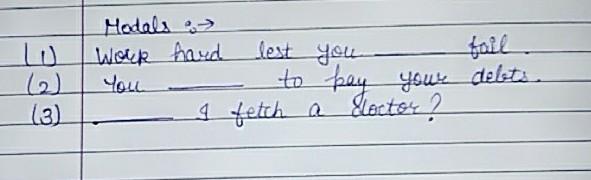 Modals :→
(1) Work hard lest you ______ fail.
(2) You ______ to pay your debts.
(3) ______ I fetch a doctor?